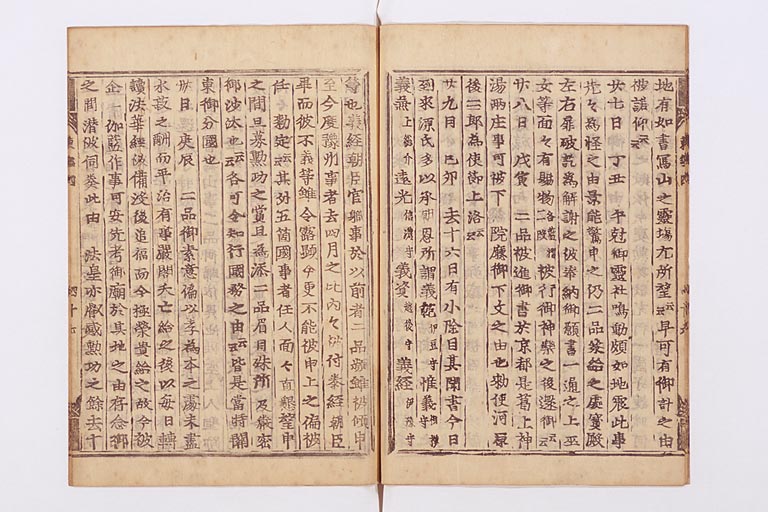 地有如書寫山之靈場尤所望云云早可有御計之由
被諾仰云云
廿七日 丁丑 午尅御靈社鳴動頗如地震此事
先々爲怪之由景能驚申之仍二品參給之處寶殿
左右扉破訖爲解謝之被奉納御願書一通之上巫
女等面々有賜物各藍摺二段歟被行御神樂之後還御云云
廿八日 戊寅 二品被進御書於京都是葛上神
湯兩庄事可被下院廳御下文之由也勅使河原
後三郎爲使節上洛云云
廿九日 己卯 去十六日有小除目其聞書今日
到來源氏多以承朝恩所謂義範伊豆守惟義相模守
義兼上総介遠光信濃守義資越後守義經伊予守
等也義經朝臣官職事於以前者二品頻雖被傾申
至今度豫州事者去四月之比内々以付泰經朝臣
畢而彼不義等雖令露顯今更不能被申止之偏被
任々勅定云云其外五箇國事者任人面々直懇望申
之間且募勲功之賞且爲添二品眉目殊所及嚴密
御沙汰也云云各可令知行國務之由云云皆是當時關
東御分國也
卅日 庚辰 二品御素意偏以孝爲本之處未盡
水菽之酬而平治有事嚴閤夭亡給之後以毎日轉
讀法華經偏備没後追福而今極榮貴給之故今被
企一伽藍作事可安先考御廟於其地之由存念御
之間潜被伺奏此由 法皇亦叡感勲功之餘去十
東鑑四
四十七